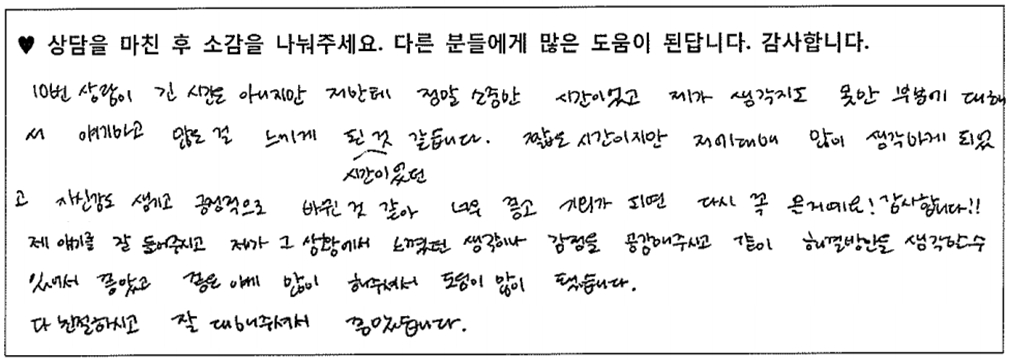 ♥ 상담을 마친 후 소감을 나눠주세요. 다른 분들에게 많은 도움이 된답니다. 감사합니다.
10번 상담이 긴 시간은 아니지만 저한테 정말 소중한 시간이었고 제가 생각지도 못한 부분에 대해
서 얘기하고 많은 걸 느끼게 된 것 같습니다. 짧은 시간이지만 저에대해 많이 생각하게 되었
시간이었던
고 자신감도 생기고 긍정적으로 바뀐 것 같아 너무 좋고 기회가 되면 다시 꼭 올거예요! 감사합니다!!
제 얘기를 잘 들어주시고 제가 그 상황에서 느꼈던 생각이나 감정을 공감해주시고 같이 해결방안을 생각할수
있어서 좋았고 좋은 얘기 많이 해주셔서 도움이 많이 됐습니다.
다 친절하시고 잘 대해주셔서 좋았습니다.